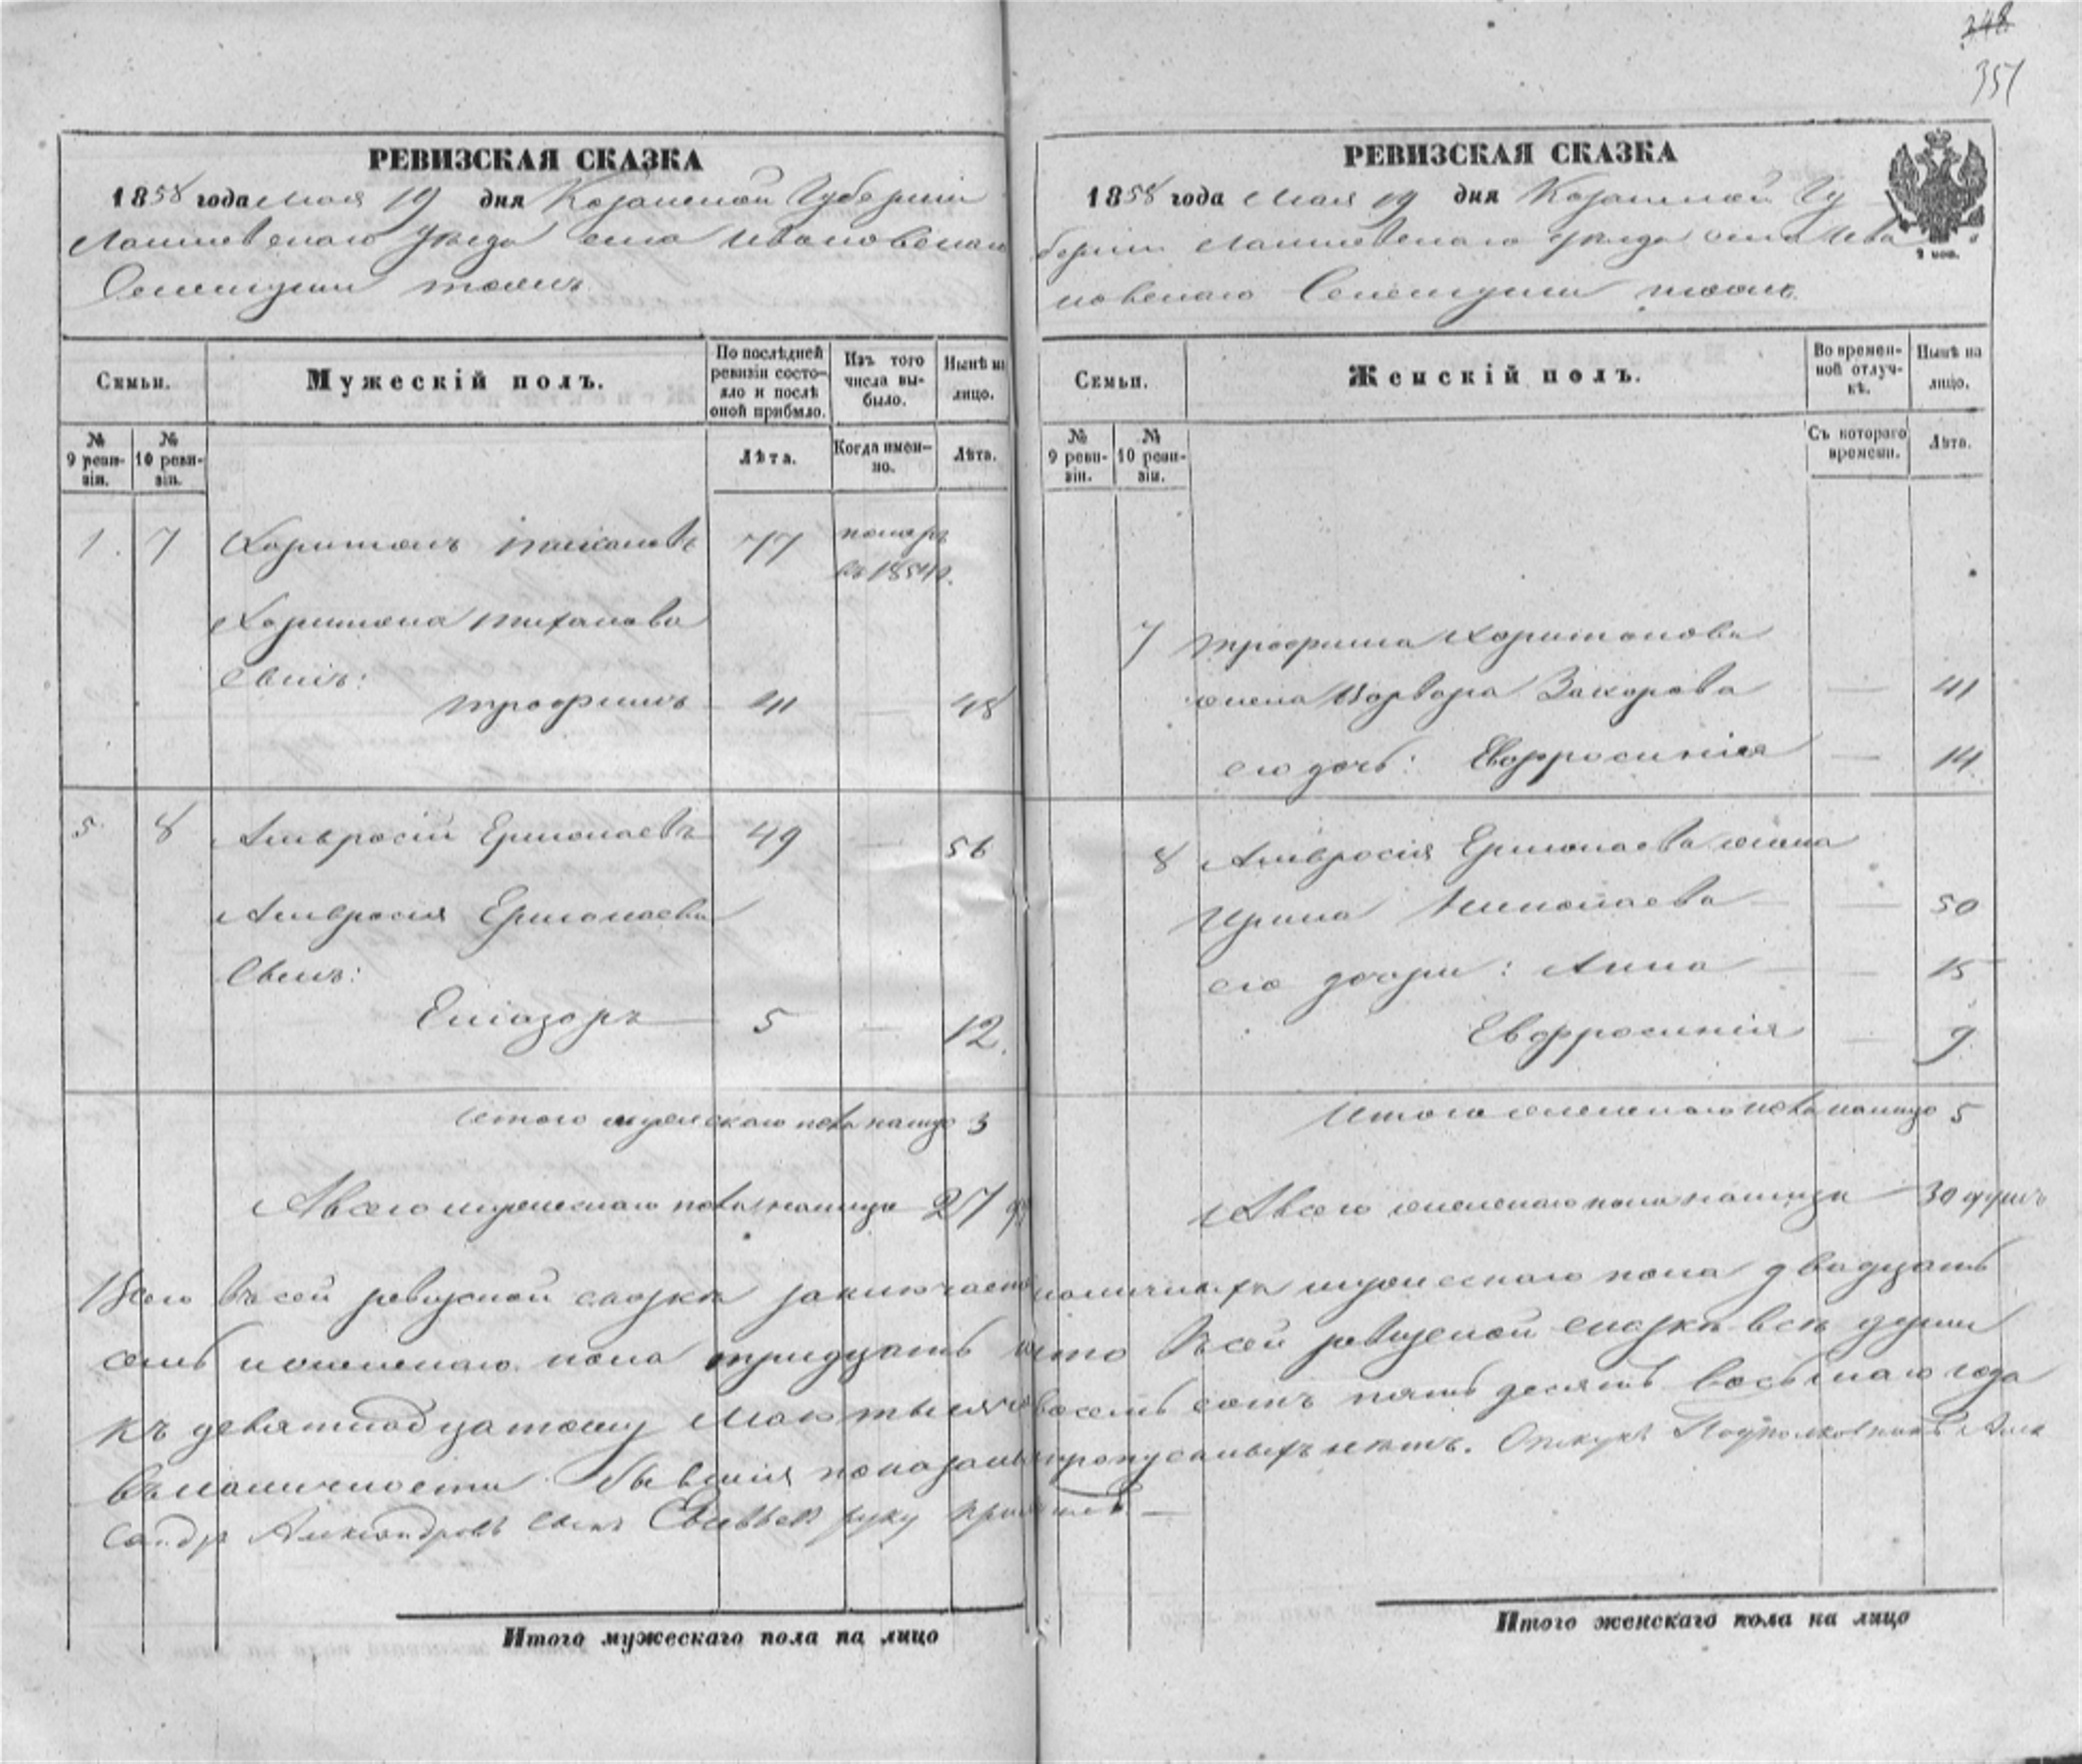 348
351
РЕВИЗСКАЯ СКАЗКА
1858 года Мая 19 дня Казанской Губерніи
Лаишевскаго Уѣзда села Ивановскаго
Сененгуши тожъ.
Семьи.
Мужескій полъ.
По послѣдней ревизіи состояло и послѣ оной прибыло.
Изъ того числа выбыло.
Нынѣ на лицо.
№ 9 ревизіи.
№ 10 ревизіи.
Лѣта.
Когда именно.
Лѣта.
1. 7 Харитонъ 77 померъ
въ 185
Харитона Тиханова
сынъ:
Трофимъ 41 — 48
5 8 Амвросій Ермолаевъ 49 — 56
Амвросія Ермолаева
Сынъ:
Еліазаръ 5 — 12.
Итого мужескаго пола налицо 3
А всего мужескаго пола налицо 27
РЕВИЗСКАЯ СКАЗКА
1858 года Мая 19 дня Казанской Гу
берніи Лаишевскаго Уѣзда села Ива
новскаго тожъ.
2 коп.
Семьи.
Женскій полъ.
Во временной отлучкѣ.
Нынѣ на лицо.
№ 9 ревизіи.
№ 10 ревизіи.
Съ котораго времени.
Лѣта.
7 Трофима Харитонова
жена Варвара Захарова — 41
его дочь: Евфросинія — 14
8 Амвросія Ермолаева жена
Ирина — 50
его дочери: Анна — 15
Евфросинія — 9
Итого женскаго пола налицо 5
А всего женскаго пола налицо 30 душъ
Всего въ сей ревизской сказкѣ заключается наличныхъ мужескаго пола двадцать
семь и женскаго пола тридцать что въ сей ревизской сказкѣ всѣ души
къ девятнадцатому Мая тысяча восемь сотъ пятьдесятъ восьмаго года
въ наличности бывшія показаны пропусканныхъ нѣтъ. Опекунъ Подполковникъ Алек
сандръ Александровъ сынъ руку приложилъ —
Итого мужескаго пола на лицо
Итого женскаго пола на лицо